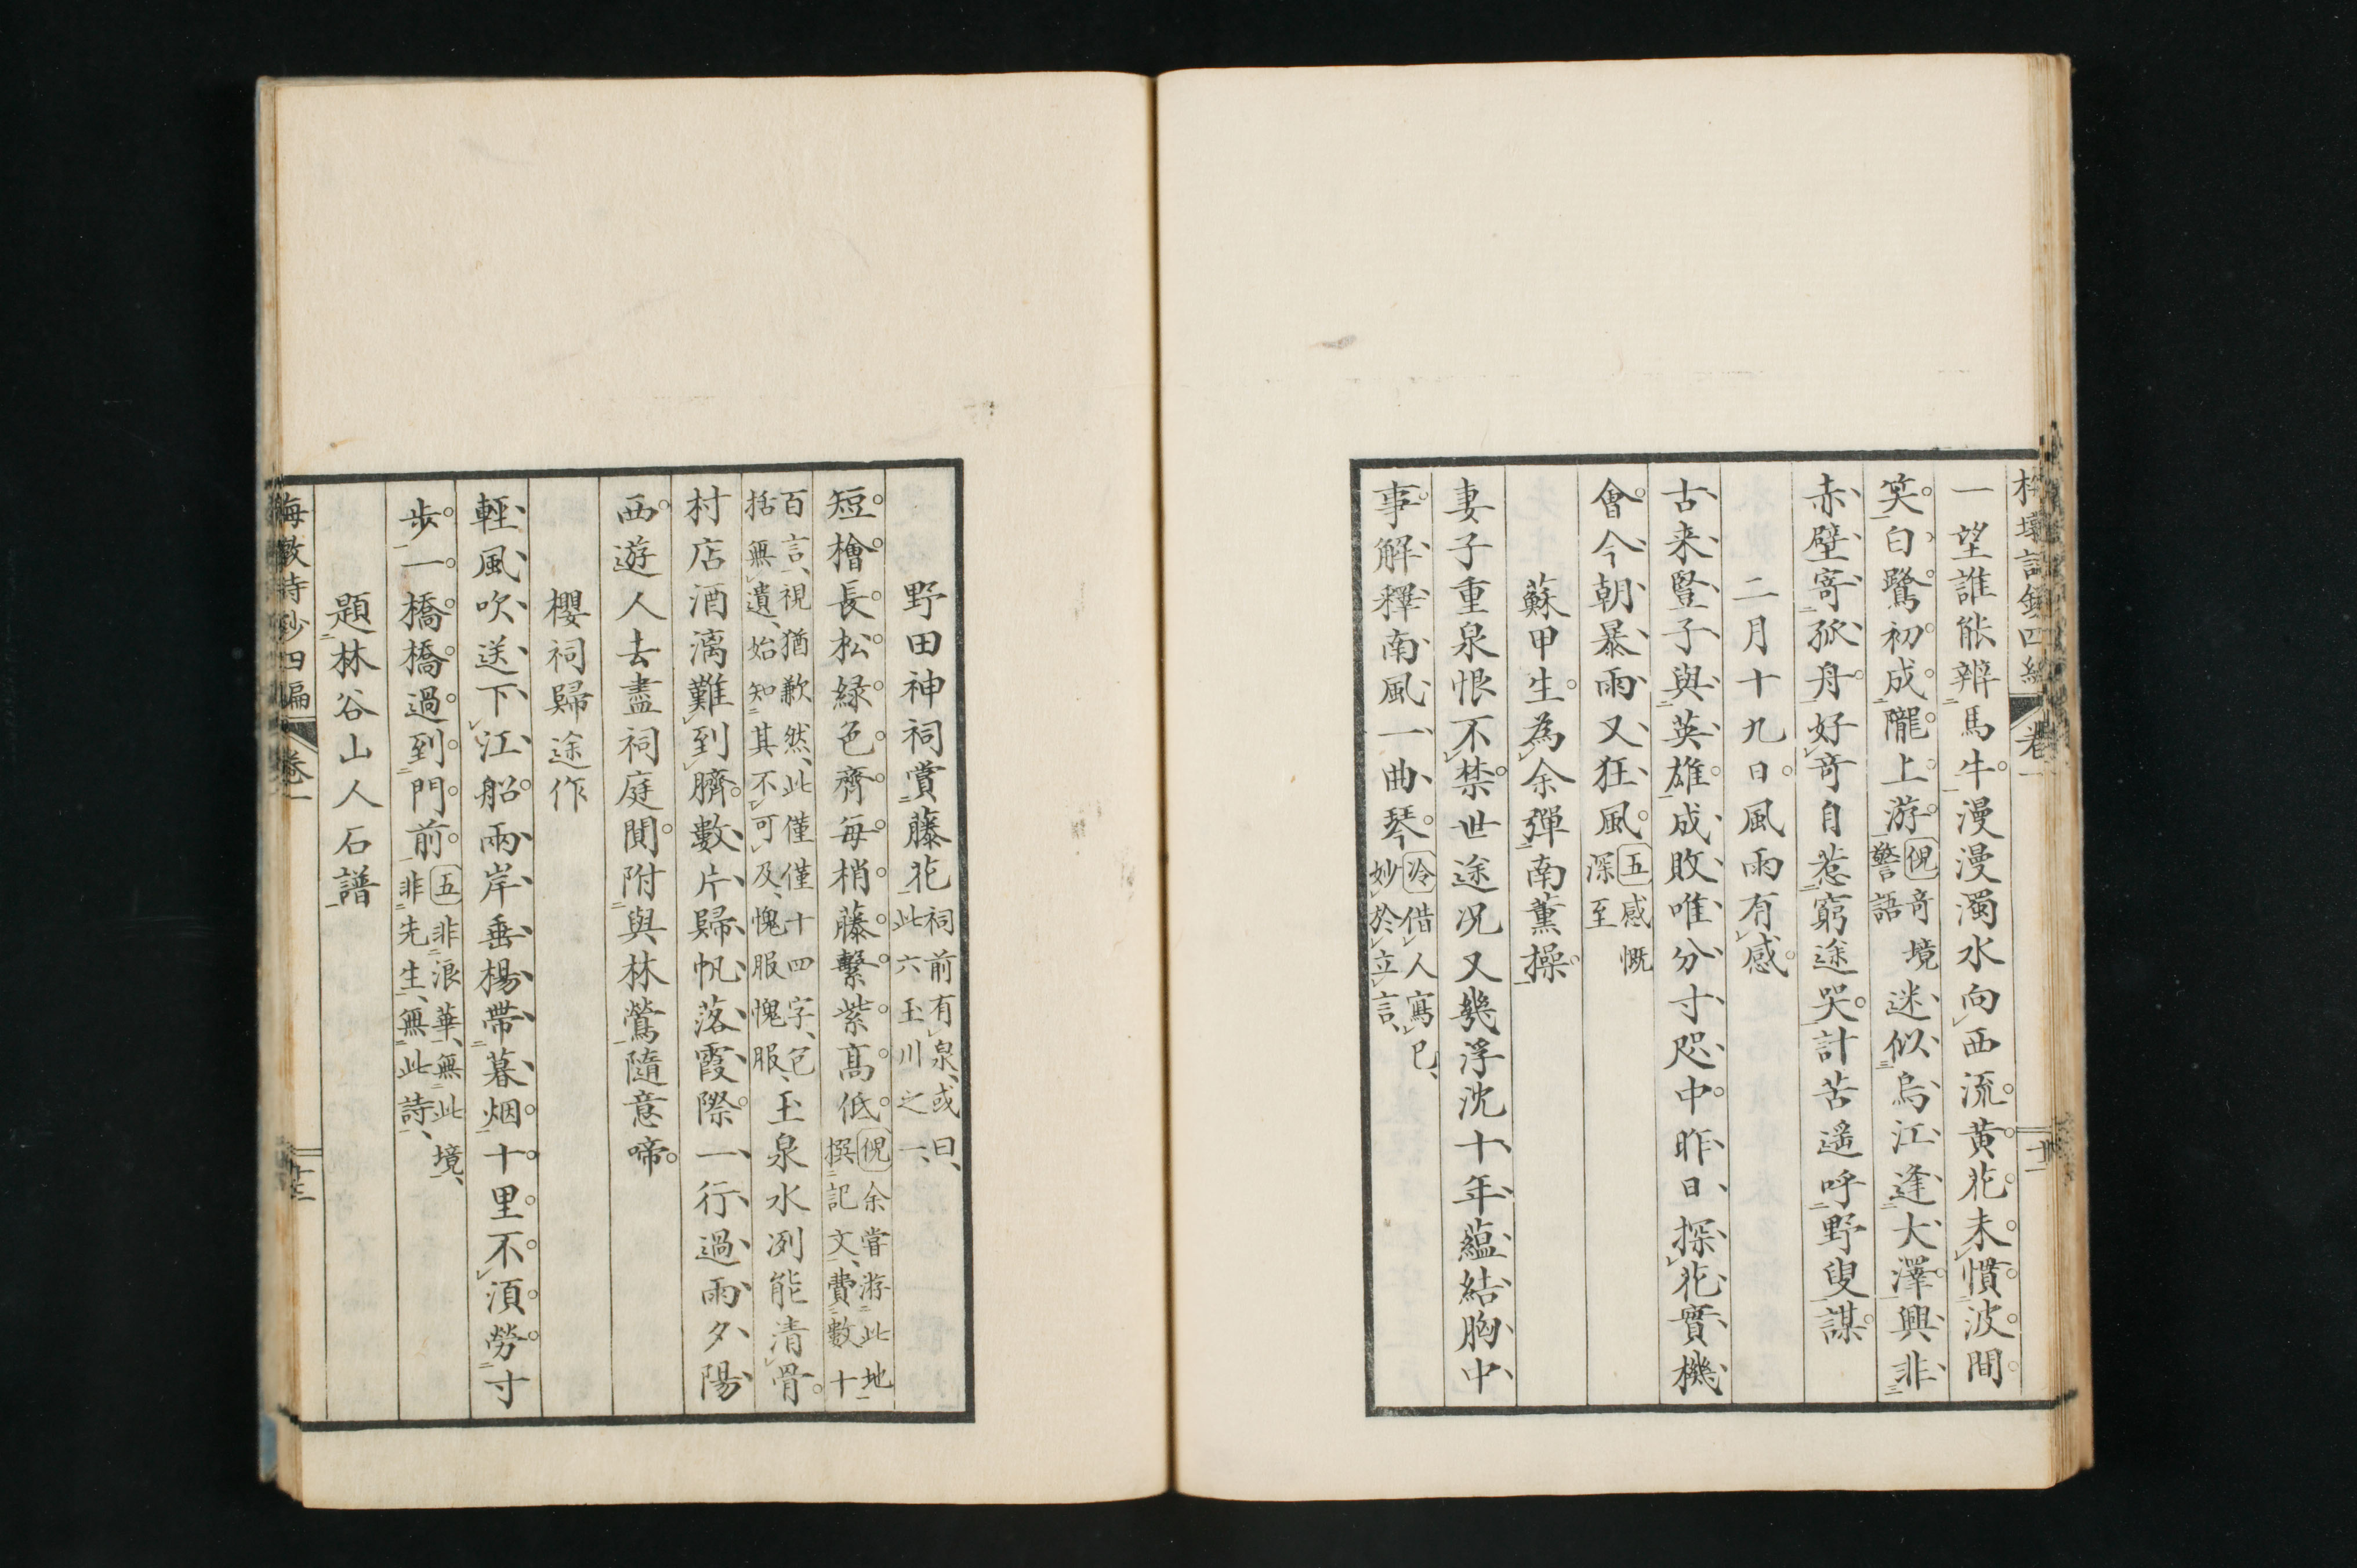 一望誰能辨馬牛漫漫濁水向西流黄花未慣波間
笑白鷺初成隴上游
倪奇境
警語
迷似烏江逢大澤興非
赤壁寄孤舟好奇自惹窮途哭計苦遥呼野叟謀
二月十九日風雨有感
古来豎子與英雄成敗唯分寸咫中昨日探花實機
會今朝暴雨又狂風
五感慨
深至
蘇甲生為余彈南薫操
妻子重泉恨不禁世途况又幾浮沈十年蘊結胸中
事解釋南風一曲琴
冷借人寫已
妙於立言
野田神祠賞藤花
祠前有泉或曰
此六玉川之一
短檜長松緑色齊每梢藤繫紫髙低
倪余嘗游此地
撰記文費數十
百言視猶歉然此僅僅十四字包
括無遺始知其不可及愧服愧服
玉泉水冽能清骨
村店酒漓難到臍數片歸帆落霞際一行過雨夕陽
西遊人去盡祠庭閴附與林鶯隨意啼
櫻祠歸途作
輕風吹送下江船兩岸垂楊帶暮烟十里不須勞寸
步一橋橋過到門前
五非浪華無此境
非先生無此詩
題林谷山人石譜
梅墩詩鈔四編
卷一